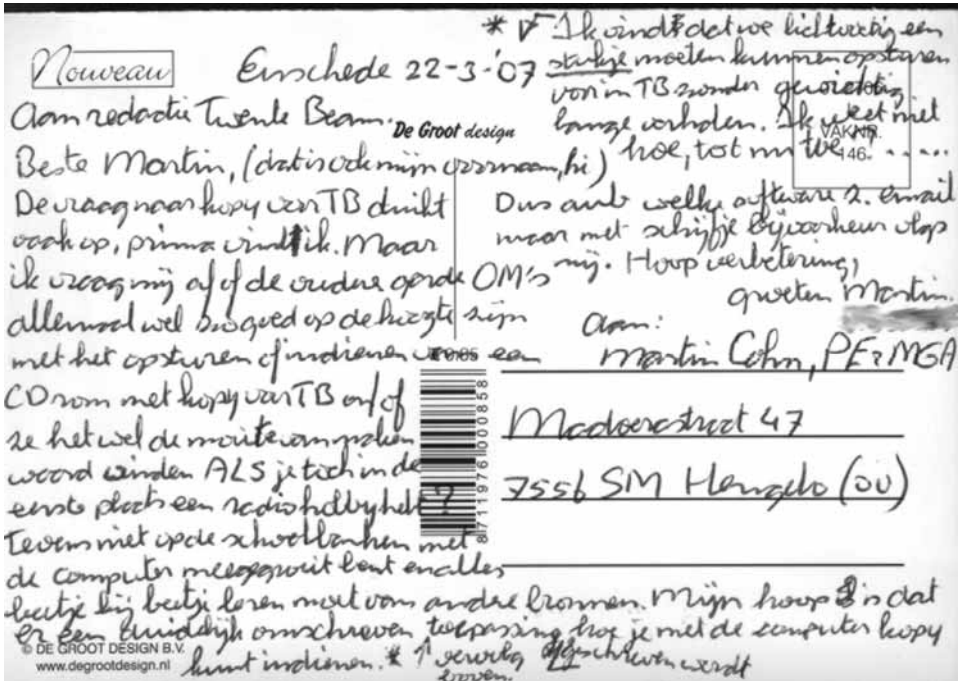 Nouveau
Enschede 22-3-'07
Aan redactie Twente Beam.
De Groot design
Beste Martin, (dat is ook mijn voornaam, hi)
De vraag naar kopy van TB duikt
vaak op, prima vind ik. Maar
ik vraag mij af of de oudere garde OM's
allemaal wel zo goed op de hoogte zijn
met het opsturen of indienen van een
CD rom met kopy van TB en/of
ze het wel de moeite van maken
waard vinden ALS je toch in de
eerste plaats een radiohobby hebt?
Tevens niet op de schoolbanken met
de computer meegegroeit bent en alles
beetje bij beetje leren moet van andere bronnen. Mijn hoop is dat
er een duidelijk omschreven toepassing hoe je met de computer kopy
kunt indienen. * ↑ vervolg geschreven wordt
boven
* Ik vind dat we lichtvoetig een
stukje moeten kunnen opsturen
voor in TB zonder gewichtig
lange verhalen. Ik weet niet
hoe, tot nu toe.....
VAKNR.
146.
Dus aub welke software 2. email
maar met schijfje bijvoorkeur
mij. Hoop verbetering,
groeten Martin.
Aan:
Martin Cohn, PE2MGA
Madoerastraat 47
7556 SM Hengelo (OV)
8711976000858
© DE GROOT DESIGN B.V.
www.degrootdesign.nl